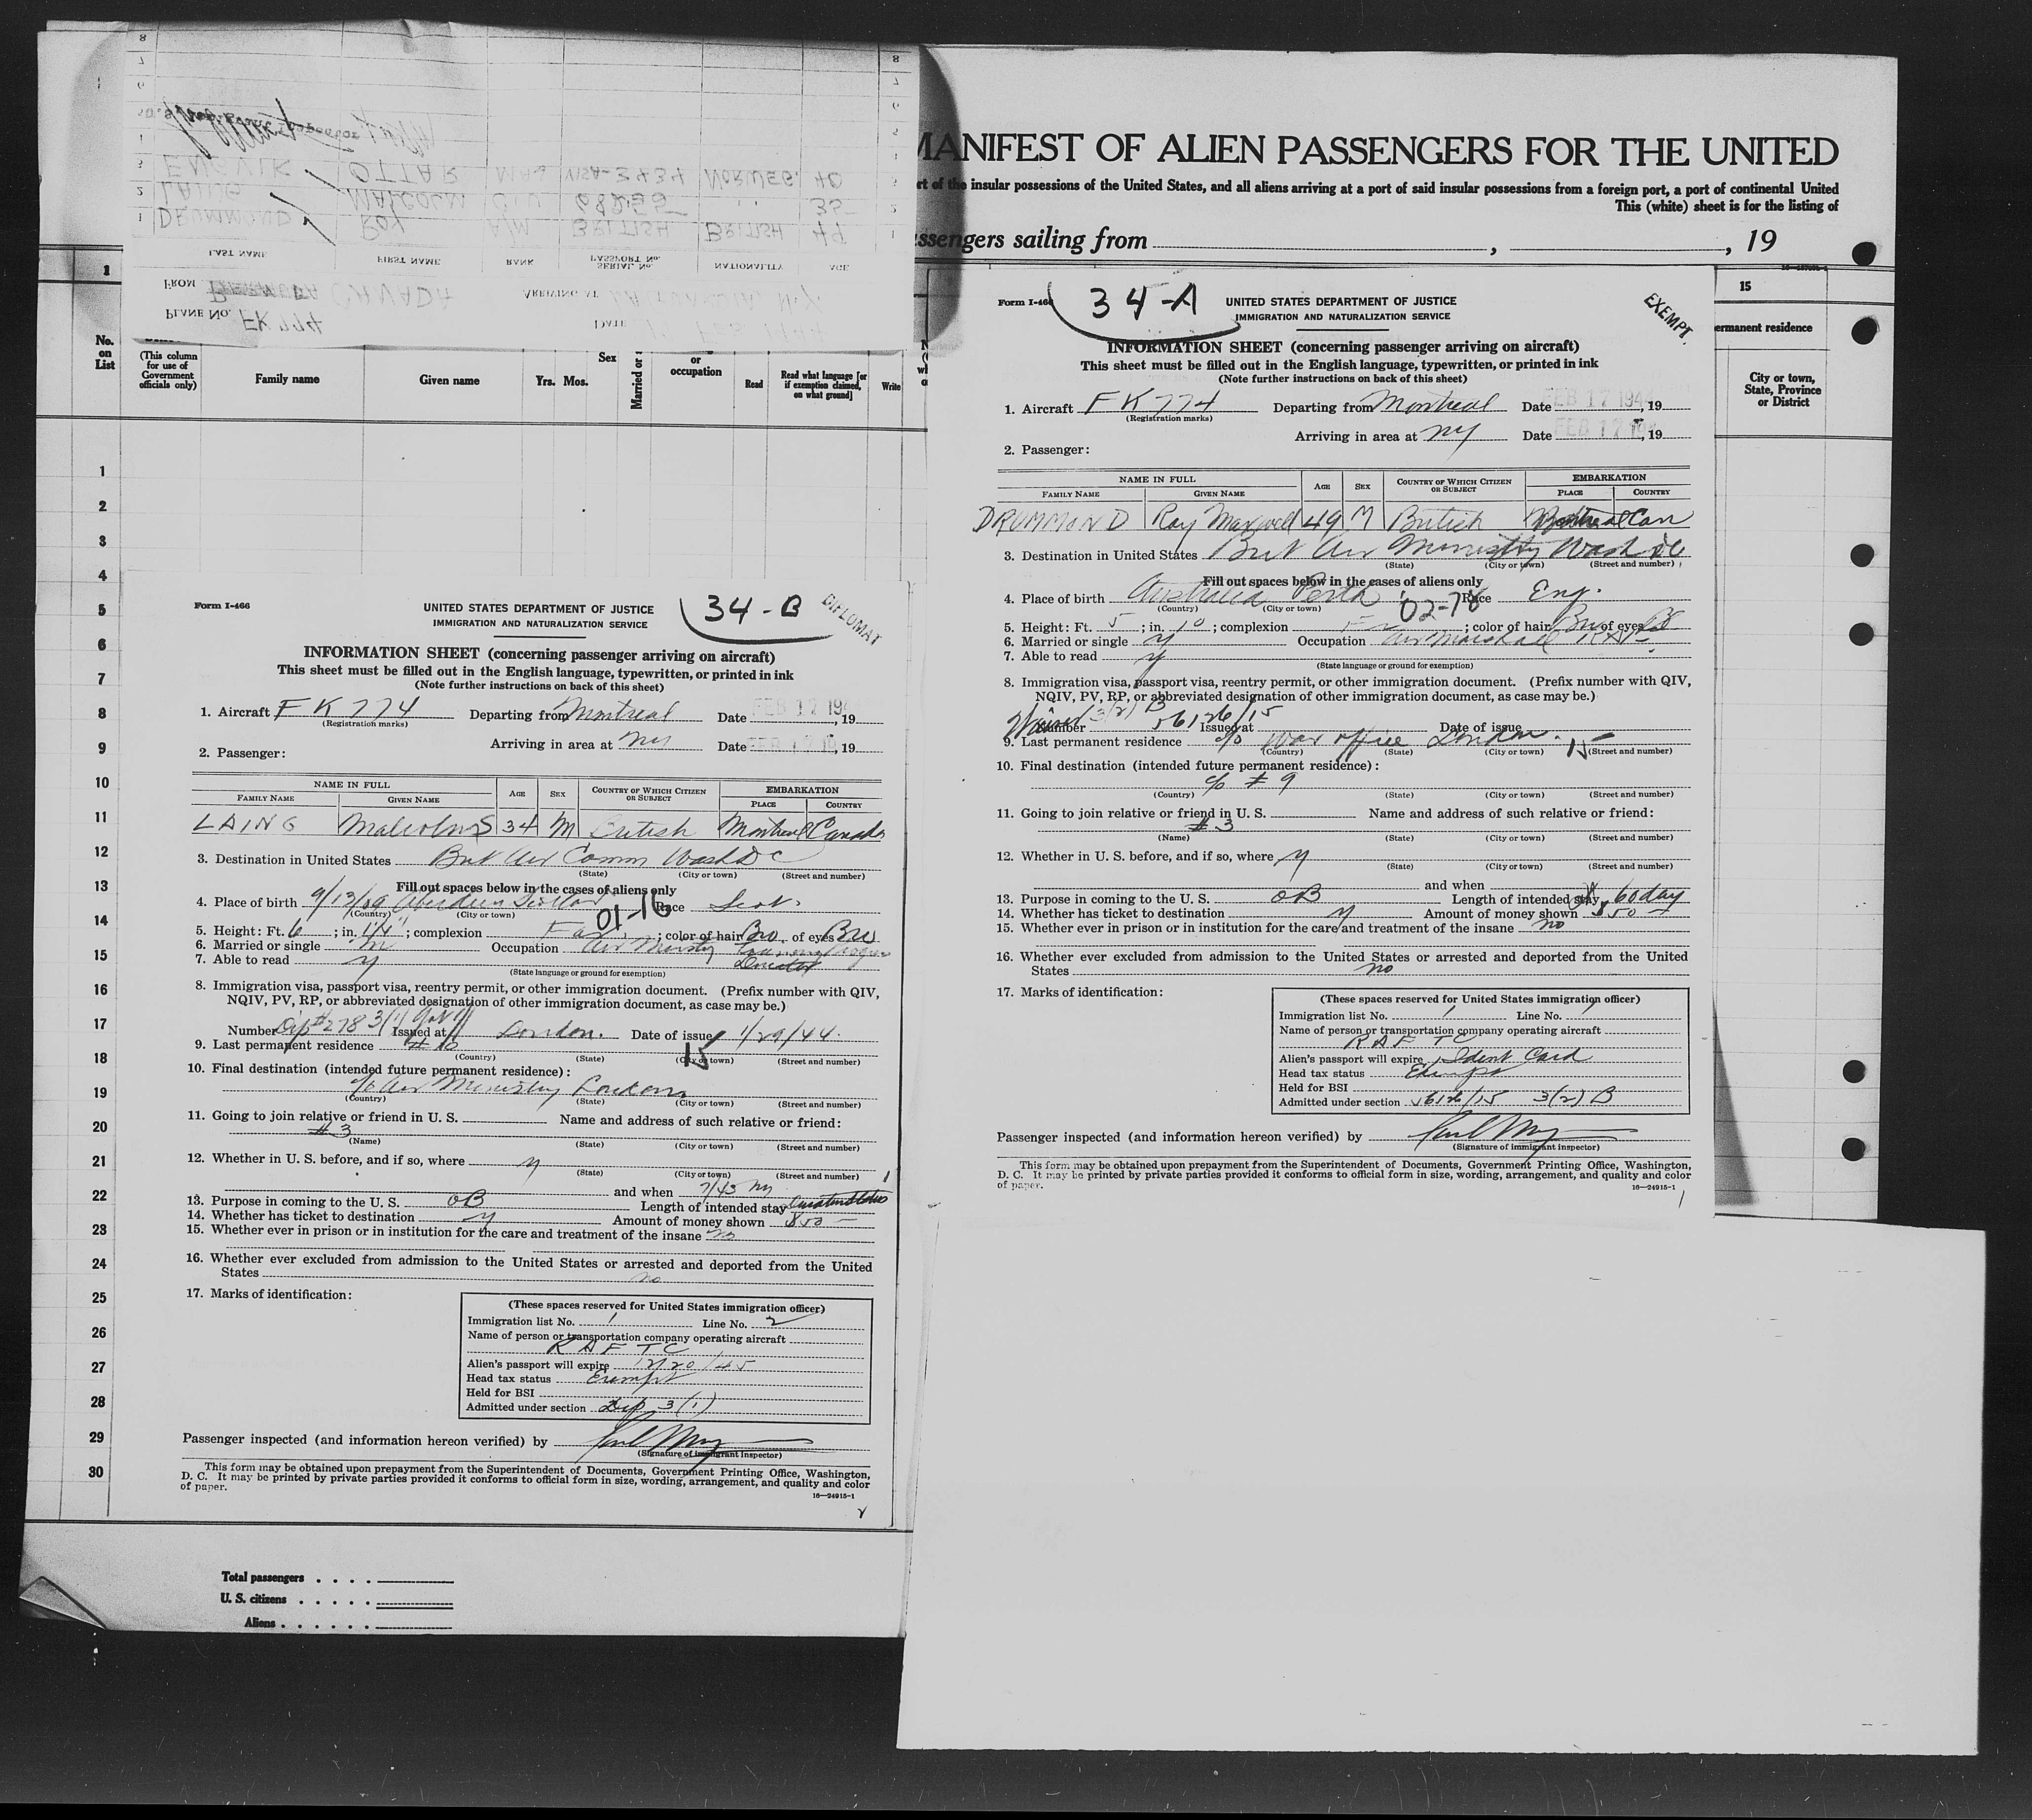 MANIFEST OF ALIEN PASSENGERS FOR THE UNITED
rt of the insular possessions of the United States, and all aliens arriving at a port of said insular possessions from a foreign port, a port of continental United
This (white) sheet is for the listing of
ssengers sailing from , , 19
PLANE No. FK 774 DATE
FROM BERMUDA CANADA ARRIVING AT N.Y.
LAST NAME FIRST NAME RANK SERIAL No. PASSPORT No. NATIONALITY AGE
1 DRUMMOND Roy A/M BRITISH BRITISH 49 1
2 LAING MALCOLM CIV 35 2
3 ENGVIK OTTAR VISA-2434 NORWEG. 40
1
No. on List
(This column for use of Government officials only)
Family name Given name Yrs. Mos. Sex or occupation Read Read what language [or if exemption claimed, on what ground] Write
15
ermanent residence
City or town, State, Province or District
1
2
3
4
5
6
7
8
9
10
11
12
13
14
15
16
17
18
19
20
21
22
23
24
25
26
27
28
29
30
Total passengers . . . .
U. S. citizens . . . . .
Aliens . . . . . .
Form I-466
UNITED STATES DEPARTMENT OF JUSTICE
IMMIGRATION AND NATURALIZATION SERVICE
34 - B
DIPLOMAT
INFORMATION SHEET (concerning passenger arriving on aircraft)
This sheet must be filled out in the English language, typewritten, or printed in ink
(Note further instructions on back of this sheet)
1. Aircraft FK774 Departing from Montreal Date FEB 17 194 , 19
(Registration marks)
Arriving in area at NY Date FEB 17 19 , 19
2. Passenger:
NAME IN FULL AGE SEX COUNTRY OF WHICH CITIZEN OR SUBJECT EMBARKATION
FAMILY NAME GIVEN NAME PLACE COUNTRY
LAING Malcolm S 34 M British Montreal Canada
3. Destination in United States Brit Air Comm Wash DC
(State) (City or town) (Street and number)
Fill out spaces below in the cases of aliens only
4. Place of birth 9/13/09 Aberdeen Scotland 01-16 Race Scot.
(Country) (City or town)
5. Height: Ft. 6 ; in. ; complexion Fair ; color of hair Bro. of eyes Bro
6. Married or single m Occupation Air Ministry
7. Able to read y Director
(State language or ground for exemption)
8. Immigration visa, passport visa, reentry permit, or other immigration document. (Prefix number with QIV,
NQIV, PV, RP, or abbreviated designation of other immigration document, as case may be.)
Number Dip # 278 3(1) Issued at London. Date of issue 1/29/44.
9. Last permanent residence # 10 15
(Country) (State) (City or town) (Street and number)
10. Final destination (intended future permanent residence):
c/o Air Ministry London
(Country) (State) (City or town) (Street and number)
11. Going to join relative or friend in U. S. Name and address of such relative or friend:
# 3
(Name) (State) (City or town) (Street and number)
12. Whether in U. S. before, and if so, where y
(State) (City or town) (Street and number)
and when 7/43 NY
13. Purpose in coming to the U. S. OB Length of intended stay
14. Whether has ticket to destination y Amount of money shown $50 —
15. Whether ever in prison or in institution for the care and treatment of the insane no
16. Whether ever excluded from admission to the United States or arrested and deported from the United
States no
17. Marks of identification:
(These spaces reserved for United States immigration officer)
Immigration list No. 1 Line No. 2
Name of person or transportation company operating aircraft
RAFTC
Alien's passport will expire 12/20/45
Head tax status Exempt
Held for BSI
Admitted under section Dip 3(1)
Passenger inspected (and information hereon verified) by
(Signature of immigrant inspector)
This form may be obtained upon prepayment from the Superintendent of Documents, Government Printing Office, Washington,
D. C. It may be printed by private parties provided it conforms to official form in size, wording, arrangement, and quality and color
of paper.
16—24915-1
Form I-466
34-A
EXEMPT.
UNITED STATES DEPARTMENT OF JUSTICE
IMMIGRATION AND NATURALIZATION SERVICE
INFORMATION SHEET (concerning passenger arriving on aircraft)
This sheet must be filled out in the English language, typewritten, or printed in ink
(Note further instructions on back of this sheet)
1. Aircraft FK774 Departing from Montreal Date FEB 17 194 , 19
(Registration marks)
Arriving in area at NY Date FEB 17 194 , 19
2. Passenger:
NAME IN FULL AGE SEX COUNTRY OF WHICH CITIZEN OR SUBJECT EMBARKATION
FAMILY NAME GIVEN NAME PLACE COUNTRY
DRUMMOND Roy Maxwell 49 M British Montreal Can
3. Destination in United States Brit Air Ministry Wash DC
(State) (City or town) (Street and number)
Fill out spaces below in the cases of aliens only
4. Place of birth Australia Perth 02-78 Race Eng.
(Country) (City or town)
5. Height: Ft. 5 ; in. 10 ; complexion ; color of hair Bro of eyes
6. Married or single y Occupation Air Marshall RAF
7. Able to read y
(State language or ground for exemption)
8. Immigration visa, passport visa, reentry permit, or other immigration document. (Prefix number with QIV,
NQIV, PV, RP, or abbreviated designation of other immigration document, as case may be.)
Waiver 3(2) B
Number 56126/15 Issued at Date of issue
9. Last permanent residence c/o War Office London. 15
(Country) (State) (City or town) (Street and number)
10. Final destination (intended future permanent residence):
c/o # 9
(Country) (State) (City or town) (Street and number)
11. Going to join relative or friend in U. S. Name and address of such relative or friend:
# 3
(Name) (State) (City or town) (Street and number)
12. Whether in U. S. before, and if so, where
(State) (City or town) (Street and number)
and when
13. Purpose in coming to the U. S. OB Length of intended stay 60 day
14. Whether has ticket to destination y Amount of money shown $50 —
15. Whether ever in prison or in institution for the care and treatment of the insane no
16. Whether ever excluded from admission to the United States or arrested and deported from the United
States no
17. Marks of identification:
(These spaces reserved for United States immigration officer)
Immigration list No. 1 Line No. 1
Name of person or transportation company operating aircraft
RAFTC
Alien's passport will expire Ident Card
Head tax status Exempt
Held for BSI
Admitted under section 56126/15 3(2) B
Passenger inspected (and information hereon verified) by
(Signature of immigrant inspector)
This form may be obtained upon prepayment from the Superintendent of Documents, Government Printing Office, Washington,
D. C. It may be printed by private parties provided it conforms to official form in size, wording, arrangement, and quality and color
of paper.
16—24915-1